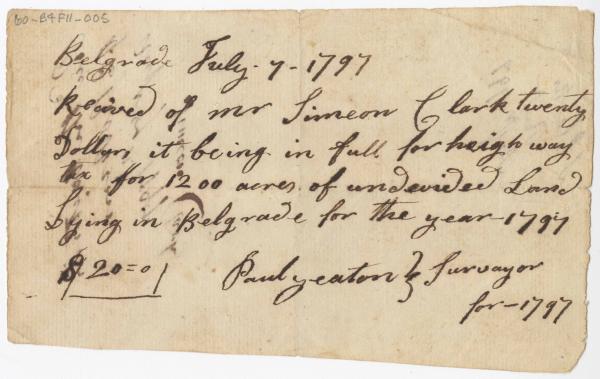 60-B4F11-005
Belgrade July-7-1797
Receved of mr Simeon Clark twenty
Dollars it being in full for heigh way
tax for 1200 acres of undevided Land
Lying in Belgrade for the year-1797
$ 20=0
Paul yeaton } Survayor
for-1797